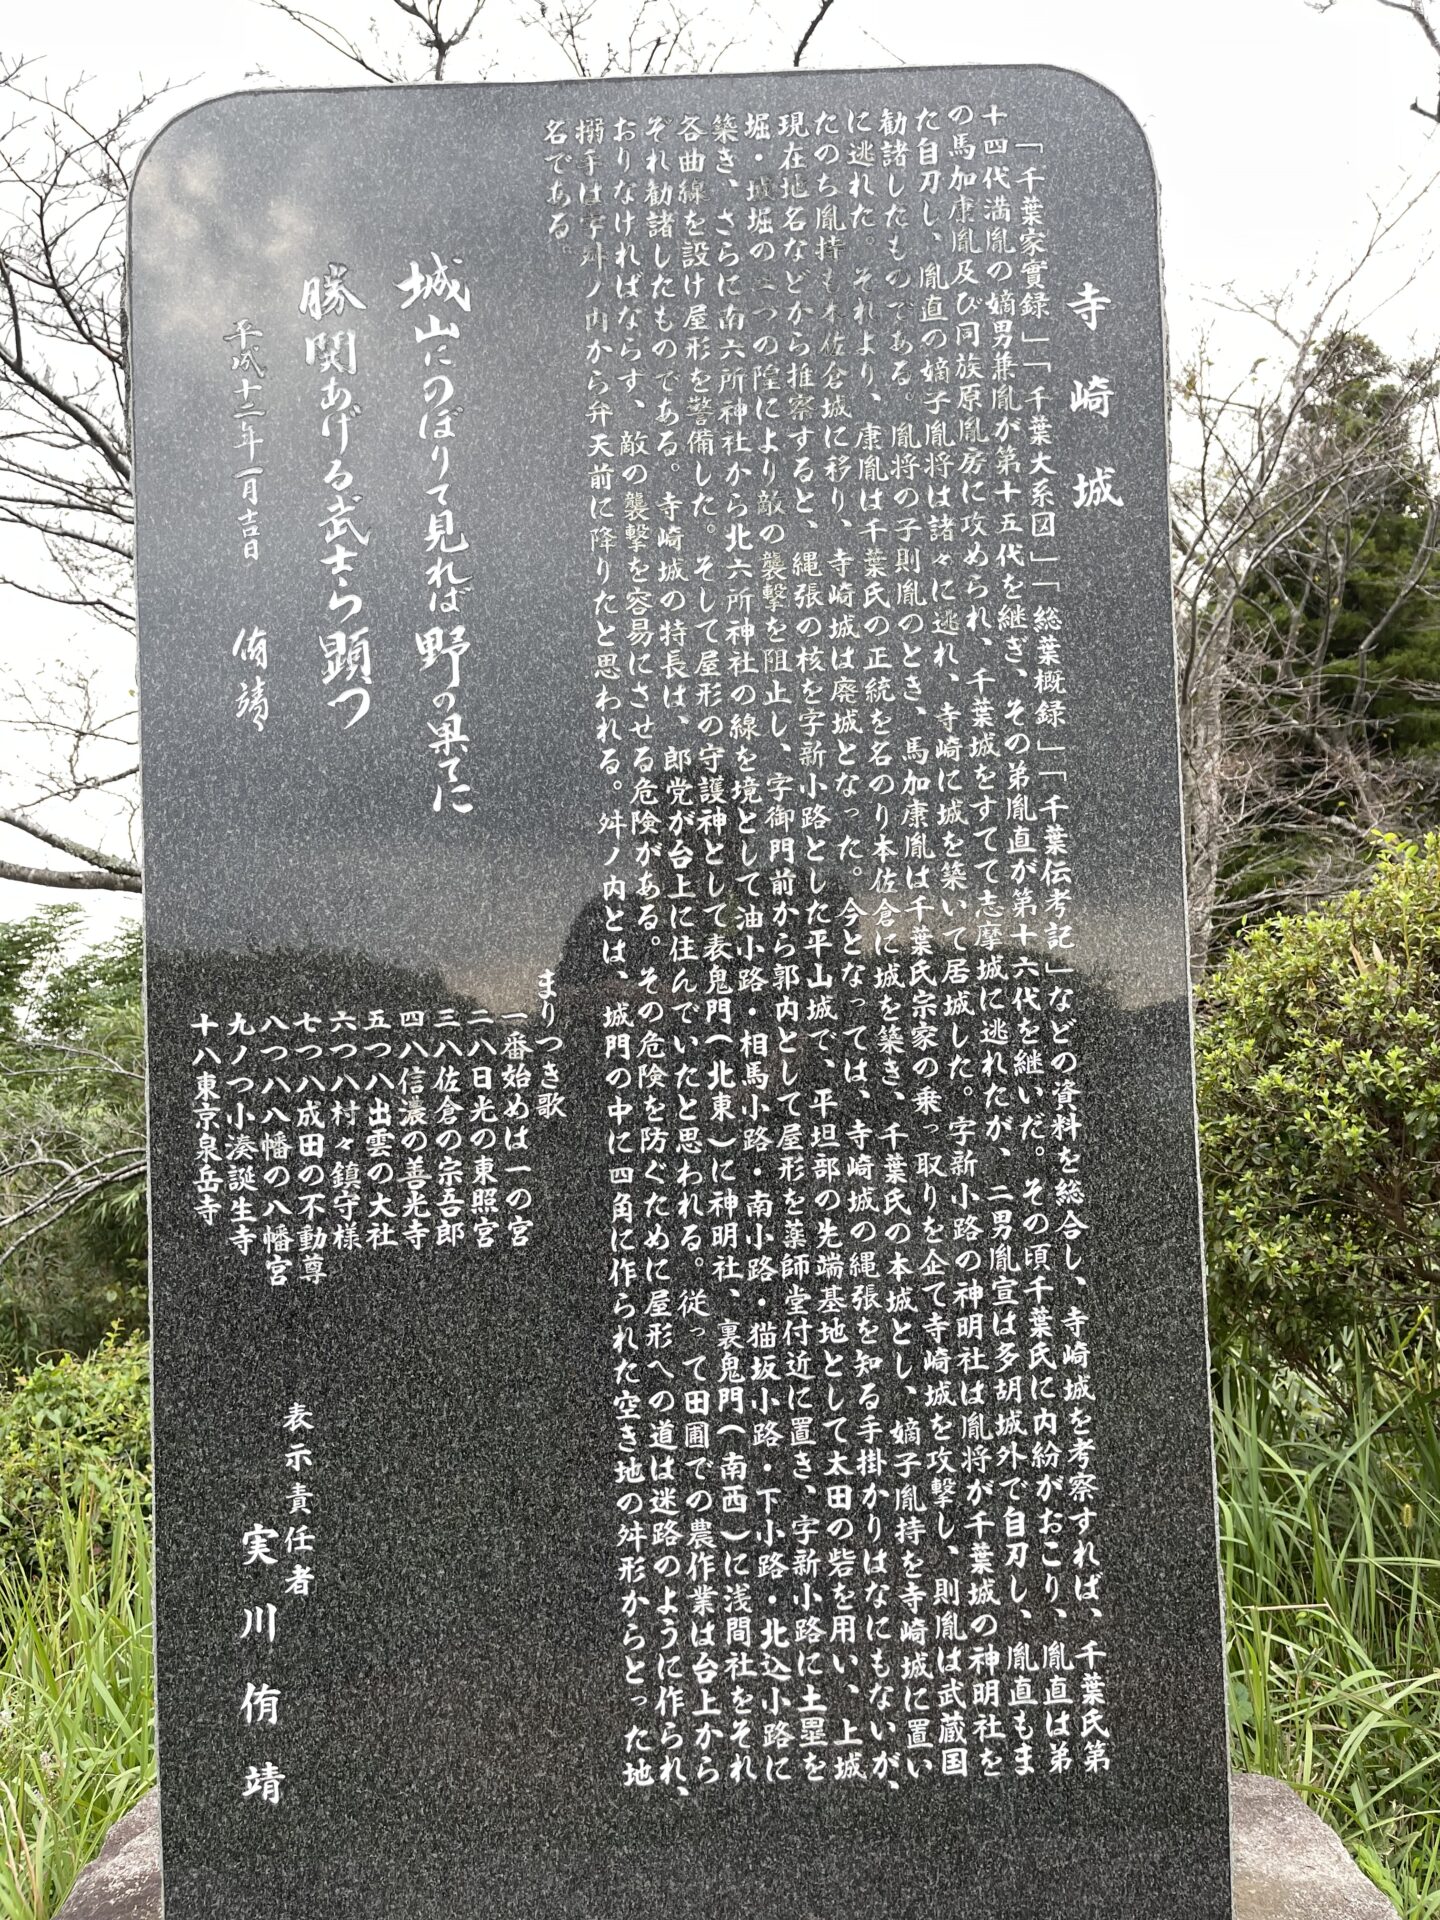 寺崎城
「千葉家實録」「千葉大系図」「総葉概録」「千葉伝考記」などの資料を総合し、寺崎城を考察すれば、千葉氏第
十四代満胤の嫡男兼胤が第十五代を継ぎ、その弟胤直が第十六代を継いだ。その頃千葉氏に内紛がおこり、胤直は弟
の馬加康胤及び同族原胤房に攻められ、千葉城をすてて志摩城に逃れたが、二男胤宣は多胡城外で自刀し、胤直もま
た自刀し、胤直の嫡子胤将は諸々に逃れ、寺崎に城を築いて居城した。字新小路の神明社は胤将が千葉城の神明社を
勧請したものである。胤将の子則胤のとき、馬加康胤は千葉氏宗家の乗っ取りを企て寺崎城を攻撃し、則胤は武蔵国
に逃れた。それより、康胤は千葉氏の正統を名のり本佐倉に城を築き、千葉氏の本城とし、嫡子胤持を寺崎城に置い
たのち胤持も本佐倉城に移り、寺崎城は廃城となった。今となっては、寺崎城の縄張を知る手掛かりはなにもないが、
現在地名などから推察すると、縄張の核を字新小路とした平山城で、平坦部の先端基地として太田の砦を用い、上城
堀・城堀の二つの隍により敵の襲撃を阻止し、字御門前から郭内として屋形を薬師堂付近に置き、字新小路に土塁を
築き、さらに南六所神社から北六所神社の線を境として油小路・相馬小路・南小路・猫坂小路・下小路・北込小路に
各曲線を設け屋形を警備した。そして屋形の守護神として表鬼門(北東)に神明社、裏鬼門(南西)に浅間社をそれ
ぞれ勧請したものである。寺崎城の特長は、郎党が台上に住んでいたと思われる。従って田圃での農作業は台上から
おりなければならず、敵の襲撃を容易にさせる危険がある。その危険を防ぐために屋形への道は迷路のように作られ、
搦手は字舛ノ内から弁天前に降りたと思われる。舛ノ内とは、城門の中に四角に作られた空き地の舛形からとった地
名である。
城山にのぼりて見れば野の果てに
勝閧あげる武士ら顕つ
平成十二年一月吉日 侑靖
まりつき歌
一番始めは一の宮
二八日光の東照宮
三八佐倉の宗吾郎
四八信濃の善光寺
五つ八出雲の大社
六つ八村々鎮守様
七つ八成田の不動尊
八つ八八幡の八幡宮
九ノつ小湊誕生寺
十八東京泉岳寺
表示責任者
実川侑靖